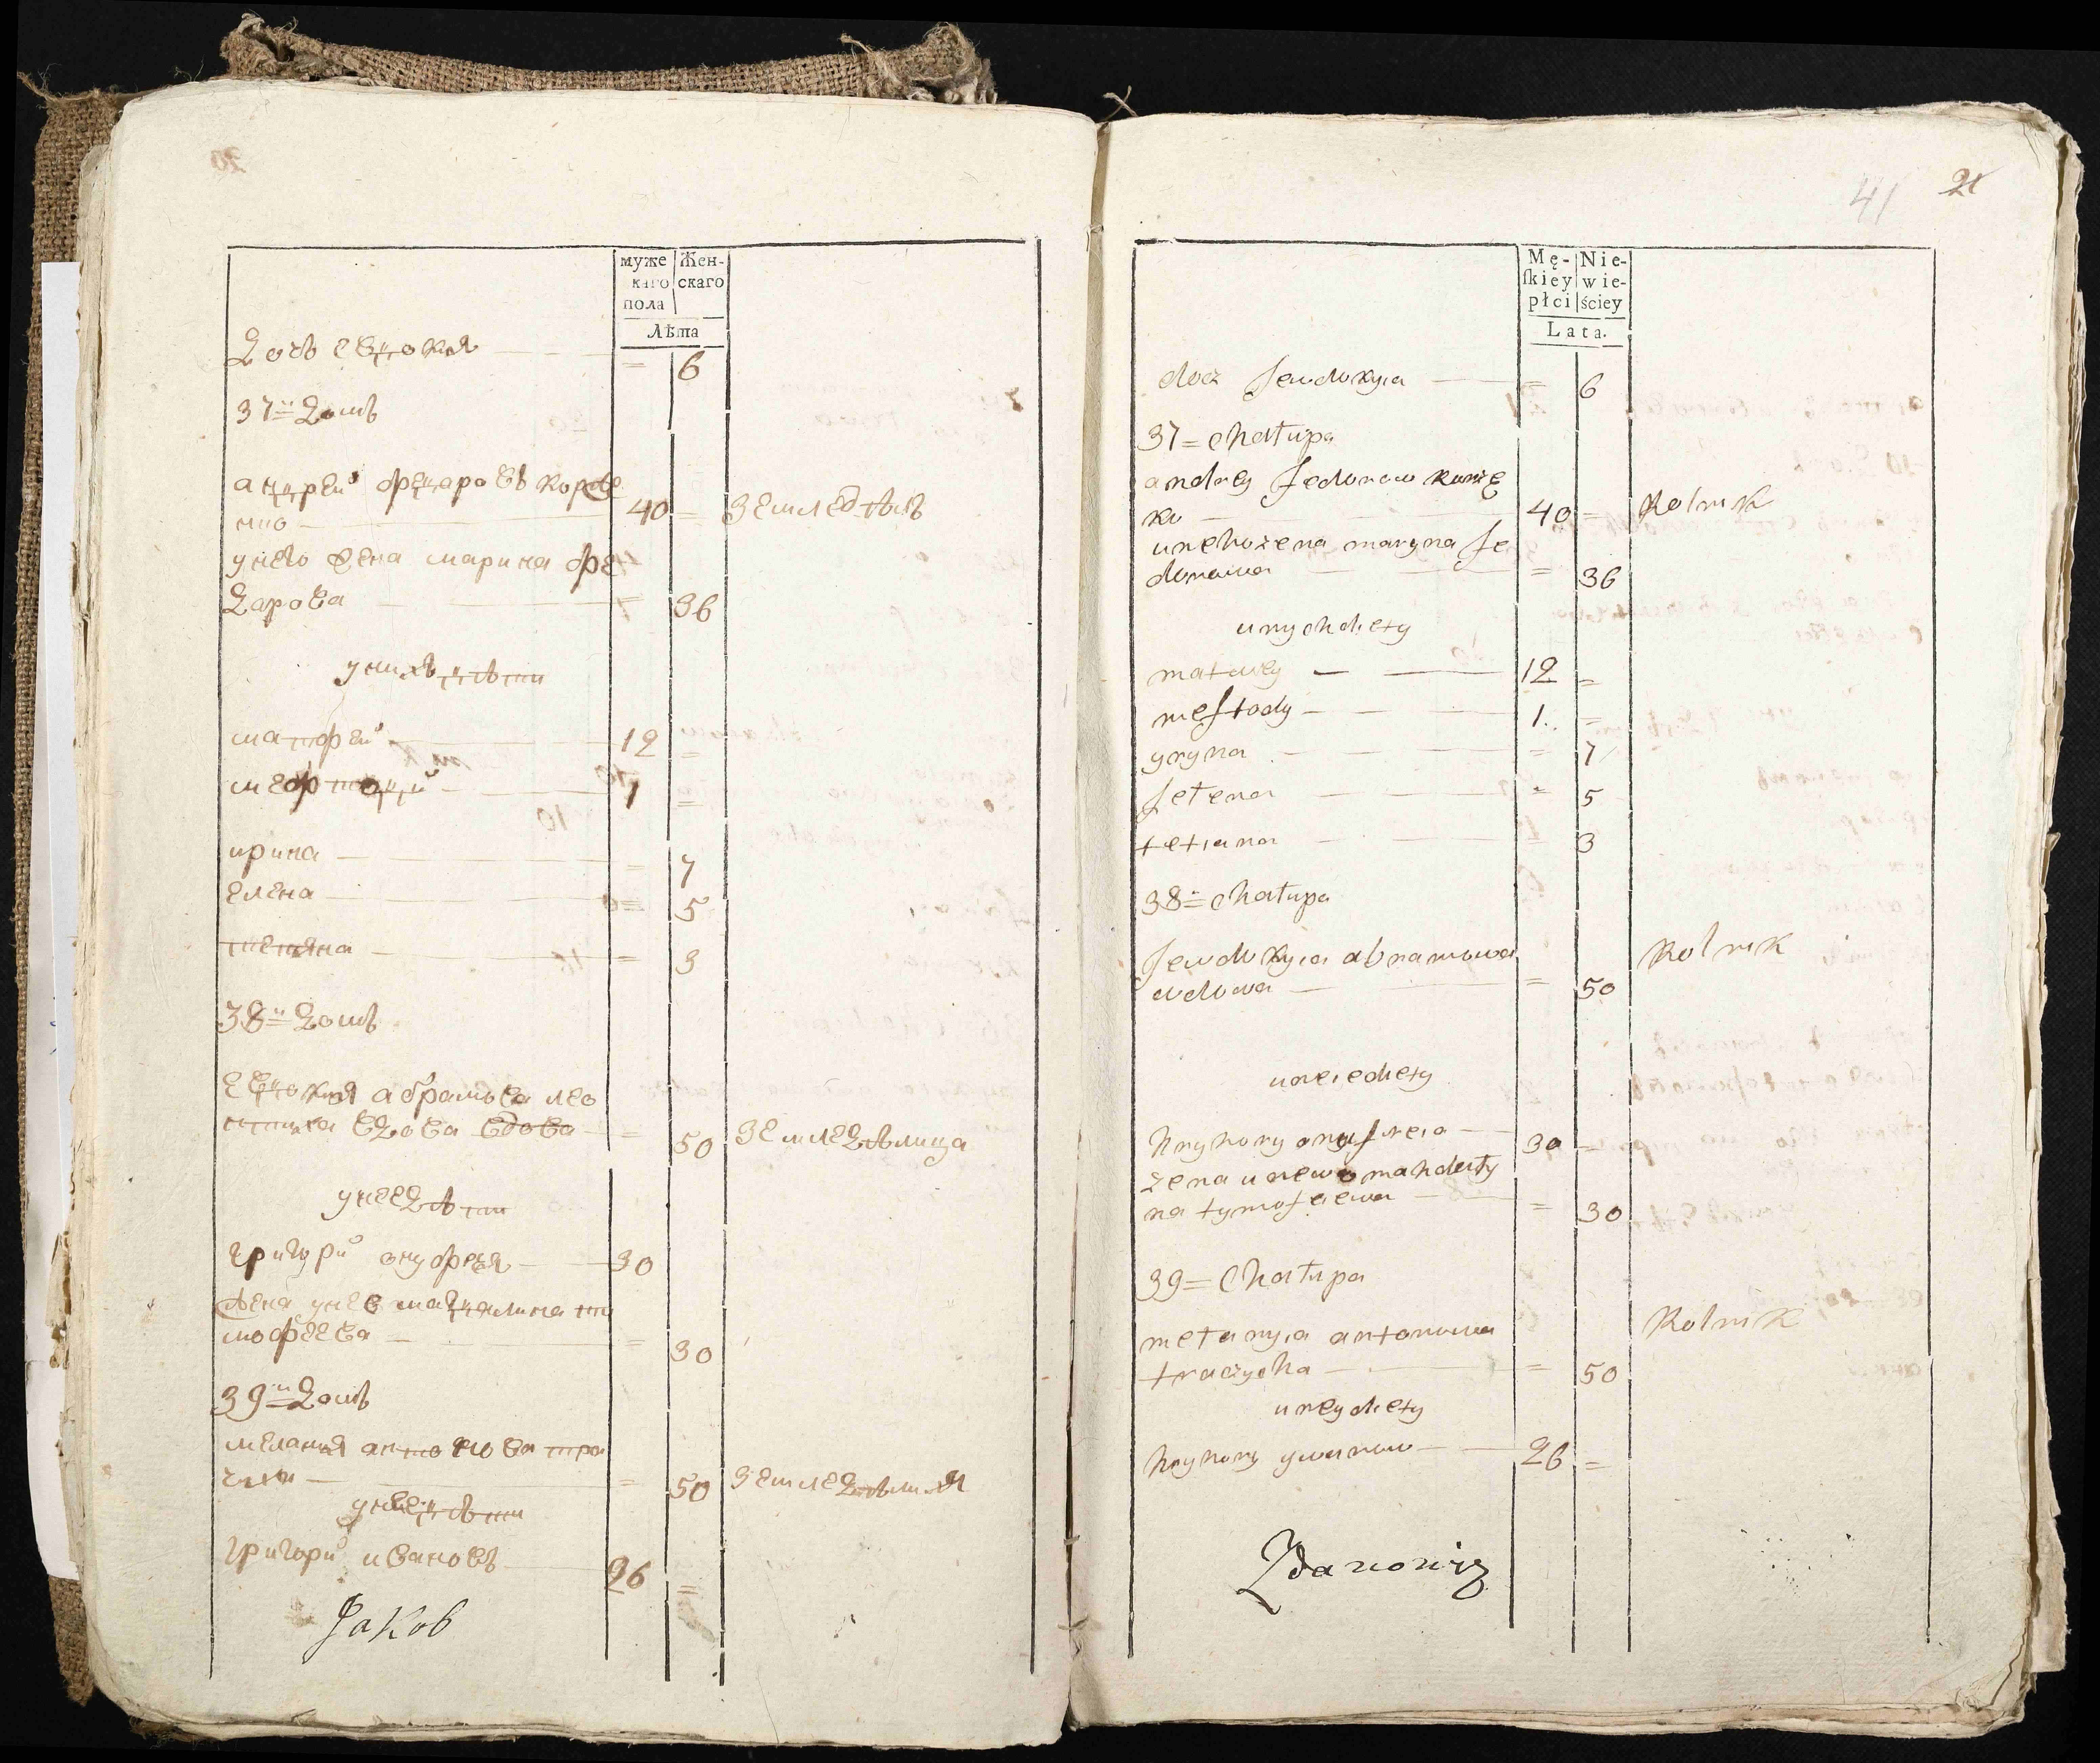 муже
каго
пола
Жен-
скаго
Лѣта
Дочь евдокия — = 6
37й Домъ
андрей федаровъ корже
нко — 40 = земледѣлъ
унего жена марина фе
дарова — = 36
унихъ дѣти
матфей — 12 =
мефтодий — 1 =
ирина — = 7
елена — = 5
тетяна — = 3
38й Домъ
евдокия абрамова лео
вдова вдова — = 50 земледѣлица
унее дѣти
григори онуфрея — 30
жена унее магдалина ти
мофеева — = 30
39й Домъ
мелания антонова тра
= 50
унее дѣти
григори ивановъ — 26 =
Jakob
41 21
Mę-
ſkiey
płci
Nie-
wie-
ściey
Lata.
docz Jewdokyia — = 6
37 = Chałupa
andrey Fedorow korże
ko — 40 = Rolnik
uneho żena maryna fe
dorowa — = 36
unych diety
matwey — 12 =
meftody — 1. =
yryna — = 7
Jełena — = 5
tetiana — = 3
38 = Chałupa
Jewdokyia abramowa Rolnik
wdowa — = 50
uneiediety
hryhory onufreia — 30 =
żena unewo mahdały
na tymofeiewa — = 30
39 = Chałupa
mełanyia antonowa Rolnik
traczycha — = 50
uney diety
hryhory ywanow — 26 =
Zdanowicz